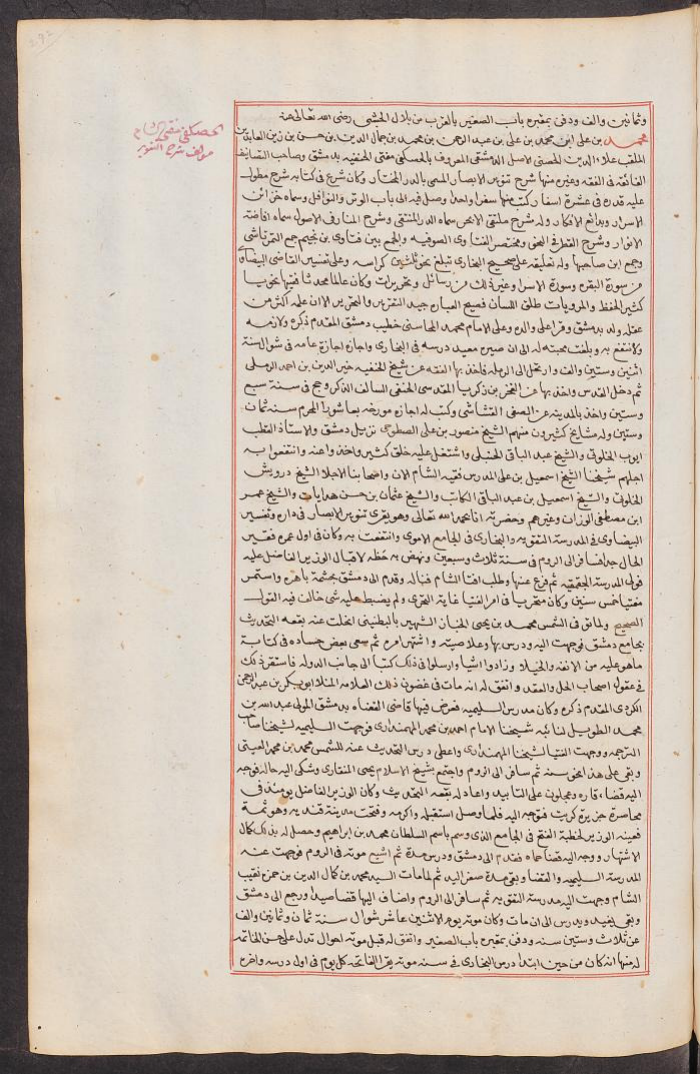 292
الحصكفي مفتي الشام
مؤلف شرح التنوير
وثمانين والف ودفن بمقبرة باب الصغير بالقرب من بلال الحبشي رضي الله تعالى عنه
محمد بن علي ابن محمد بن علي بن عبد الرحمن بن محمد بن جمال الدين بن حسن بن زين العابدين
الملقب علاء الدين الحصني الاصل الدمشقي المعروف بالحصكفي مفتي الحنفيه بدمشق وصاحب التصانيف
الفائقة في الفقه وغيره منها شرح تنوير الابصار المسمى بالدر المختار وكان شرح في كتابة شرح مطول
عليه قدره في عشرة اسفار كتب منها سفرا واحدا وصل فيه الى باب الوتر والنوافل وسماه خزائن
الاسرار وبدائع الافكار وله شرح ملتقى الابحر سماه الدر المنتقى وشرح المنار في الاصول سماه افاضة
الانوار وشرح القطر في النحو ومختصر الفتاوى الصوفيه والجمع بين فتاوى بن نجيم جمع التمرتاشي
وجمع ابن صاحبها وله تعليقة على صحيح البخاري تبلغ نحو ثلاثين كراسه وعلى تفسير القاضي البيضاوي
من سورة البقره وسورة الاسرا وغير ذلك من رسائل وتحريرات وكان عالما محدثا فقيها نحويا
كثير الحفظ والمرويات طلق اللسان فصيح العباره جيد التقرير والتحرير الا ان علمه اكثر من
عقله ولد بدمشق وقرا على والده وعلى الامام محمد المحاسني خطيب دمشق المقدم ذكره ولازمه
وانتفع به وبلغت محبته له الى ان صيره معيد درسه في البخاري واجازه اجازة عامه في شوال سنة
اثنين وستين والف وارتحل الى الرمله فاخذ بها الفقه عن شيخ الحنفيه خير الدين بن احمد الرملي
ثم دخل القدس واخذ بها عن الفخر بن زكريا المقدسي الحنفي السالف الذكر وحج في سنة سبع
وستين واخذ بالمدينه عن الصفي القشاشي وكتب له اجازه مورخه بعاشورا المحرم سنة ثمان
وستين وله مشايخ كثيرون منهم الشيخ منصور بن علي السطوحي نزيل دمشق والاستاذ القطب
ايوب الخلوتي والشيخ عبد الباقي الحنبلي واشتغل عليه خلق كثير واخذوا عنه وانتفعوا به
اجلهم شيخنا الشيخ اسمعيل بن علي المدرس فقيه الشام الان واصحابنا الاجلا الشيخ درويش
الحلواني والشيخ اسمعيل بن عبد الباقي الكاتب والشيخ عثمان بن حسن هدايات والشيخ عمر
ابن مصطفى الوزان وغيرهم وحضرته انا بحمد الله تعالى وهو يقري تنوير الابصار في داره وتفسير
البيضاوي في المدرسة التقويه والبخاري في الجامع الاموي وانتفعت به وكان في اول عمره فقير
الحال جدا فسافر الى الروم في سنة ثلاث وسبعين ونهض به حظه لاقبال الوزير الفاضل عليه
فولي المدرسة الجقمقيه ثم فرغ عنها وطلب افتا الشام فناله وقدم الى دمشق بحشمة باهره واستمر
مفتيا خمس سنين وكان متحريا في امر الفتيا غاية التحري ولم يضبط عليه شي خالف فيه القول
الصحيح ولما توفي الشمس محمد بن يحيى الخباز الشهير بالبطنيني انحلت عنه بقعة التحديث
بجامع دمشق فوجهت اليه ودرس بها وعلا صيته واشتهر امره ثم سعى بعض حساده في كتابة
ما هو عليه من الانفه والخيلا وزادوا اشيا وارسلوا في ذلك كتبا الى جانب الدوله فاستقر ذلك
في عقول اصحاب الحل والعقد واتفق له انه مات في غضون ذلك العلامه المنلا ابو بكر بن عبد الرحمن
الكردي المقدم ذكره وكان مدرس السليميه فعرض فيها قاضي القضاه بدمشق المولى عبد الله بن
محمد الطويل لنائبه شيخنا الامام احمد بن محمد المهمنداري فوجهت السليميه لشيخنا صاحب
الترجمه ووجهت الفتيا لشيخنا المهمنداري واعطي درس التحديث عنه للشمس محمد بن محمد العيثي
وبقي على هذا نحو سنه ثم سافر الى الروم واجتمع بشيخ الاسلام يحيى المنقاري وشكى اليه حاله فوجه
اليه قضاء قاره وعجلون على التابيد واعاد له بقعة التحديث وكان الوزير الفاضل يومئذ في
محاصرة جزيرة كريت فتوجه اليه فلما وصل استقبله واكرمه وفتحت مدينة قنديه وهو ثمة
فعينه الوزير لخطبة الفتح في الجامع الذي وسم باسم السلطان محمد بن ابراهيم وحصل له بذلك كمال
الاشتهار ووجه اليه قضا حماه فقدم الى دمشق ودرس مدة ثم اشيع موته في الروم فوجهت عنه
المدرسة السليميه والقضا وبقي مدة صفر اليد ثم لما مات السيد محمد بن كمال الدين بن حمزه نقيب
الشام وجهت اليه مدرسة التقويه ثم سافر الى الروم واضاف اليها قضا صيدا ورجع الى دمشق
وبقي يفيد ويدرس الى ان مات وكان موته يوم الاثنين عاشر شوال سنة ثمان وثمانين والف
عن ثلاث وستين سنه ودفن بمقبرة باب الصغير واتفق له قبل موته احوال تدل على حسن الخاتمه
له منها انه كان من حين ابتدا درس البخاري في سنه موته يقرا الفاتحه كل يوم في اول درسه واخره